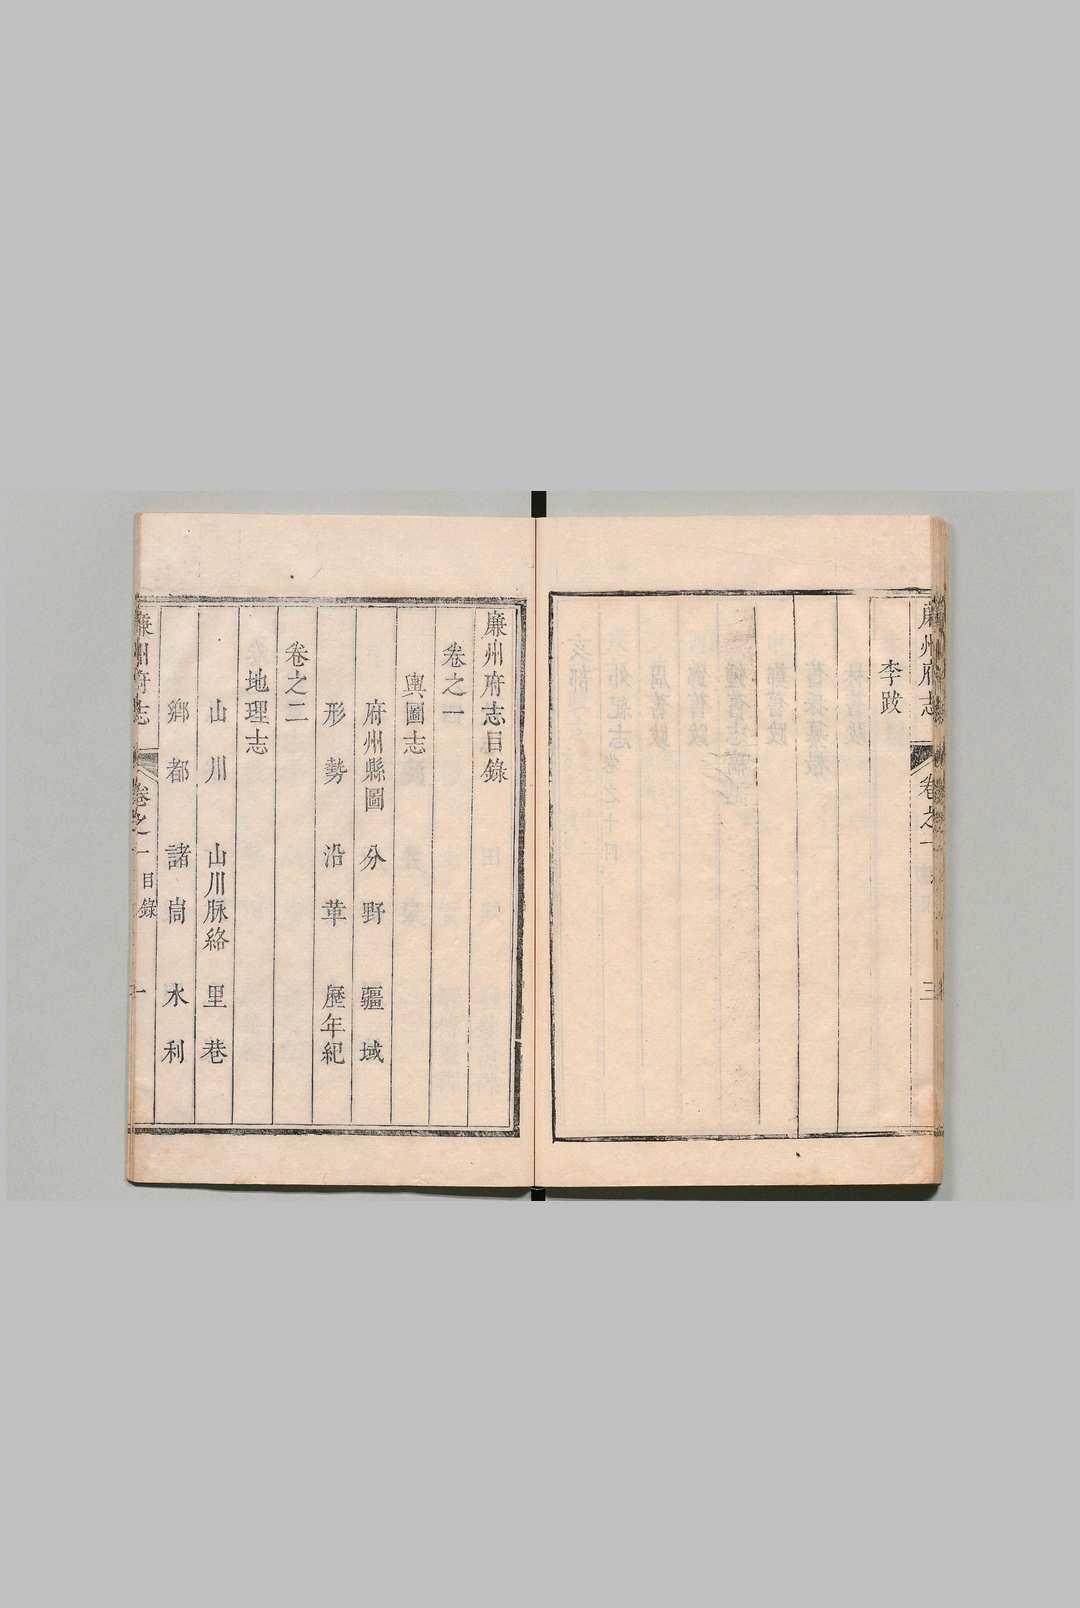 廉州府志 卷之一 三
李跋
廉州府志目錄
卷之一
輿圖志
府州縣圖 分野 疆域
形勢 沿革 歷年紀
卷之二
地理志
山川 山川脉絡 里巷
鄉都 諸峝 水利
廉州府志 卷之一 目錄 一